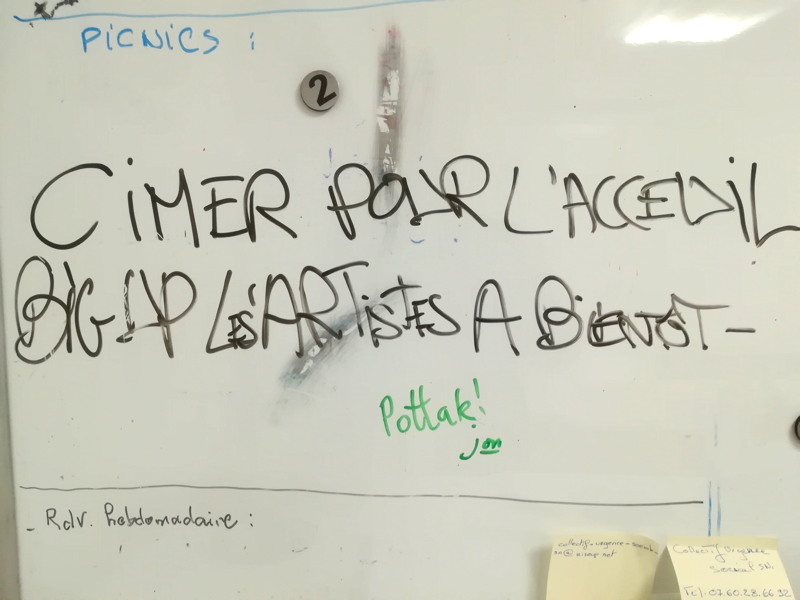 PICNICS :
2
CIMER POUR L'ACCEUIL
BIG UP LES ARTISTES A BIENTOT -
Pottak!
Jon
- Rdv. hebdomadaire :
Collectif Urgence
Tel. 07.60.28.66.32